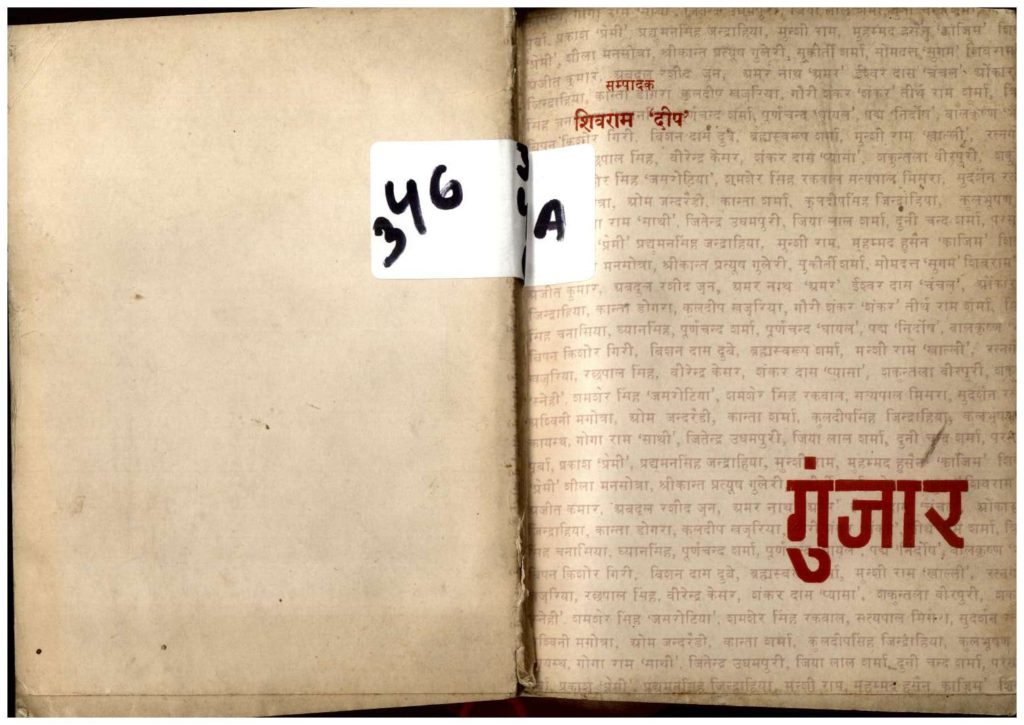 346
A
सम्पादक
शिवराम 'दीप'
गुंजार
प्रकाश 'प्रेमी', प्रद्युमनसिंह जन्द्राहिया, मुन्शी राम, मुहम्मद हुसैन 'काजिम'
'प्रेमी', शीला मनसोत्रा, श्रीकान्त प्रत्यूष गुलेरी, सुकीर्ती शर्मा, सोमदत्त 'सुगम' शिवराम
कुमार, अबदुल रशीद जुन, अमर नाथ 'अमर' ईश्वर दास 'चंचल'
जिन्द्राहिया, कान्ता डोगरा, कुलदीप खजुरिया, गौरी शंकर 'शंकर' तीर्थ राम शर्मा,
पूर्णचन्द शर्मा, पूर्णचन्द 'घायल', पद्म 'निर्दोष',
किशोर गिरी, बिशन दास दुबे, ब्रह्मस्वरूप शर्मा, मुन्शी राम 'खाल्ली',
रछपाल सिंह, वीरेन्द्र केसर, शंकर दास 'प्यासा', शकुन्तला बीरपुरी,
सिंह 'जमरोटिया', शमशेर सिंह रकवाल सत्यपाल मिसरा, सुदर्शन
ओम जन्दरैडी, कान्ता शर्मा, कुलदीपसिंह जिन्द्राहिया, कुलभूषण
राम 'साथी', जितेन्द्र उधमपुरी, जिया लाल शर्मा, दुनी चन्द शर्मा,
'प्रेमी' प्रद्युमनसिंह जन्द्राहिया, मुन्शी राम, मुहम्मद हुसैन 'काजिम'
मनगोत्रा, श्रीकान्त प्रत्यूष गुलेरी, सुकीर्ती शर्मा, सोमदत्त 'सुगम' शिवराम
कुमार, अबदुल रशीद जुन, अमर नाथ 'अमर' ईश्वर दास 'चंचल',
जिन्द्राहिया, कान्ता डोगरा, कुलदीप खजुरिया, गौरी शंकर 'शंकर' तीर्थ राम शर्मा,
सिंह चनासिया, ध्यानसिंह, पूर्णचन्द शर्मा, पूर्णचन्द 'घायल', पद्म 'निर्दोष', बालकृष्ण
किशोर गिरी, बिशन दास दुबे, ब्रह्मस्वरूप शर्मा, मुन्शी राम 'खाल्ली',
खजुरिया, रछपाल सिंह, वीरेन्द्र केसर, शंकर दास 'प्यासा', शकुन्तला बीरपुरी,
शमशेर सिंह 'जमरोटिया', शमशेर सिंह रकवाल, सत्यपाल मिसरा, सुदर्शन
अश्विनी मगोत्रा, ओम जन्दरैडी, कान्ता शर्मा, कुलदीपसिंह जिन्द्राहिया, कुलभूषण
कायस्थ, गोगा राम 'साथी', जितेन्द्र उधमपुरी, जिया लाल शर्मा, दुनी चन्द शर्मा,
प्रकाश 'प्रेमी', प्रद्युमनसिंह जन्द्राहिया, मुन्शी राम, मुहम्मद हुसैन 'काजिम'
'प्रेमी' शीला मनसोत्रा, श्रीकान्त प्रत्यूष गुलेरी
कुमार, अबदुल रशीद जुन, अमर नाथ
जिन्द्राहिया, कान्ता डोगरा, कुलदीप खजुरिया,
चनासिया, ध्यानसिंह, पूर्णचन्द शर्मा, 'निर्दोष', बालकृष्ण
किशोर गिरी, बिशन दास दुबे, मुन्शी राम 'खाल्ली',
खजुरिया, रछपाल सिंह, वीरेन्द्र केसर, शंकर दास 'प्यासा', शकुन्तला बीरपुरी,
शमशेर सिंह 'जमरोटिया', शमशेर सिंह रकवाल, सत्यपाल मिसरा, सुदर्शन
मगोत्रा, ओम जन्दरैडी, कान्ता शर्मा, कुलदीपसिंह जिन्द्राहिया, कुलभूषण
गोगा राम 'साथी', जितेन्द्र उधमपुरी, जिया लाल शर्मा, दुनी चन्द शर्मा,
प्रकाश 'प्रेमी', प्रद्युमनसिंह जन्द्राहिया, मुन्शी राम, मुहम्मद हुसैन 'काजिम'